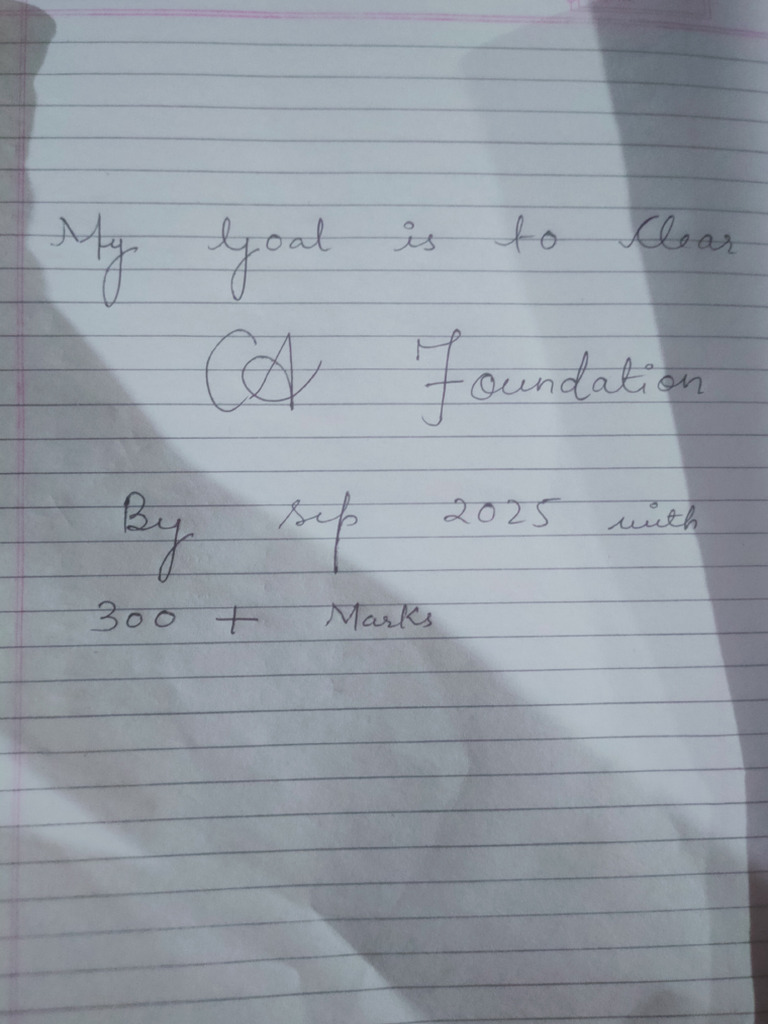 My Goal is to Clear
CA Foundation
By Sep 2025 with
300 + Marks